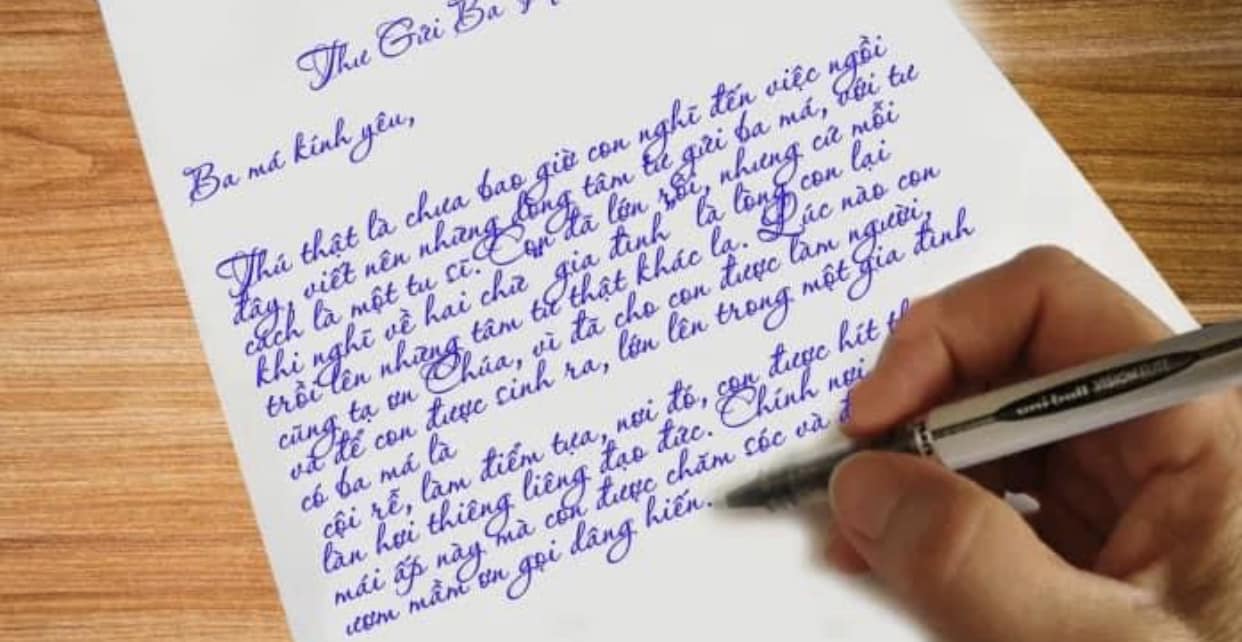 Thư Gửi Ba
Ba má kính yêu,
Thú thật là chưa bao giờ con nghĩ đến việc ngồi
đây, viết nên những dòng tâm tư gửi ba má, với tư
cách là một tu sĩ. Con đã lớn rồi, nhưng cứ mỗi
khi nghĩ về hai chữ gia đình là lòng con lại
trỗi lên những tâm tư thật khác lạ. Lúc nào con
cũng tạ ơn Chúa, vì đã cho con được làm người,
và để con được sinh ra, lớn lên trong một gia đình
có ba má là
cội rễ, làm điểm tựa, nơi đó, con được hít
làn hơi thiêng liêng đạo đức. Chính nơi
mái ấp này mà con được chăm sóc và
ươm mầm ơn gọi dâng hiến.
uni-ball VISION ELITE